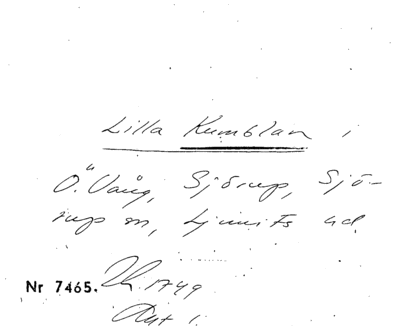 Lilla Kumblan i
Ö. Vång, Sjörup, Sjö-
rup sn, Ljunits hd.
Nr 7465. Lh 1749
Akt 1.